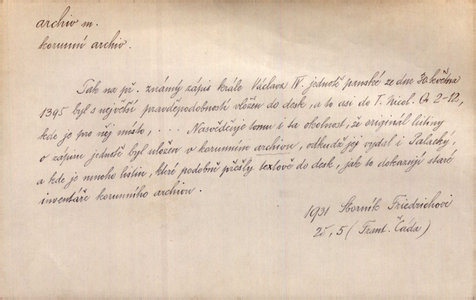 archiv m.
korunní archiv.
Tak na př. známý zápis krále Václava IV. jednotě panské ze dne 30. května
1395 byl s největší pravděpodobností vložen do desk, a to asi do 1. Miel. G 2-12,
kde je pro něj místo, . . . Nasvědčuje tomu i ta okolnost, že originál listiny
o zápisu jednotě byl uložen v korunním archivu, odkudž jej vydal i Palacký,
a kde je mnoho listin, které podobně přešly textově do desk, jak to dokazují staré
inventáře korunního archivu.
1931 Sborník Friedrichově
25, 5 (Frant. Čáda)